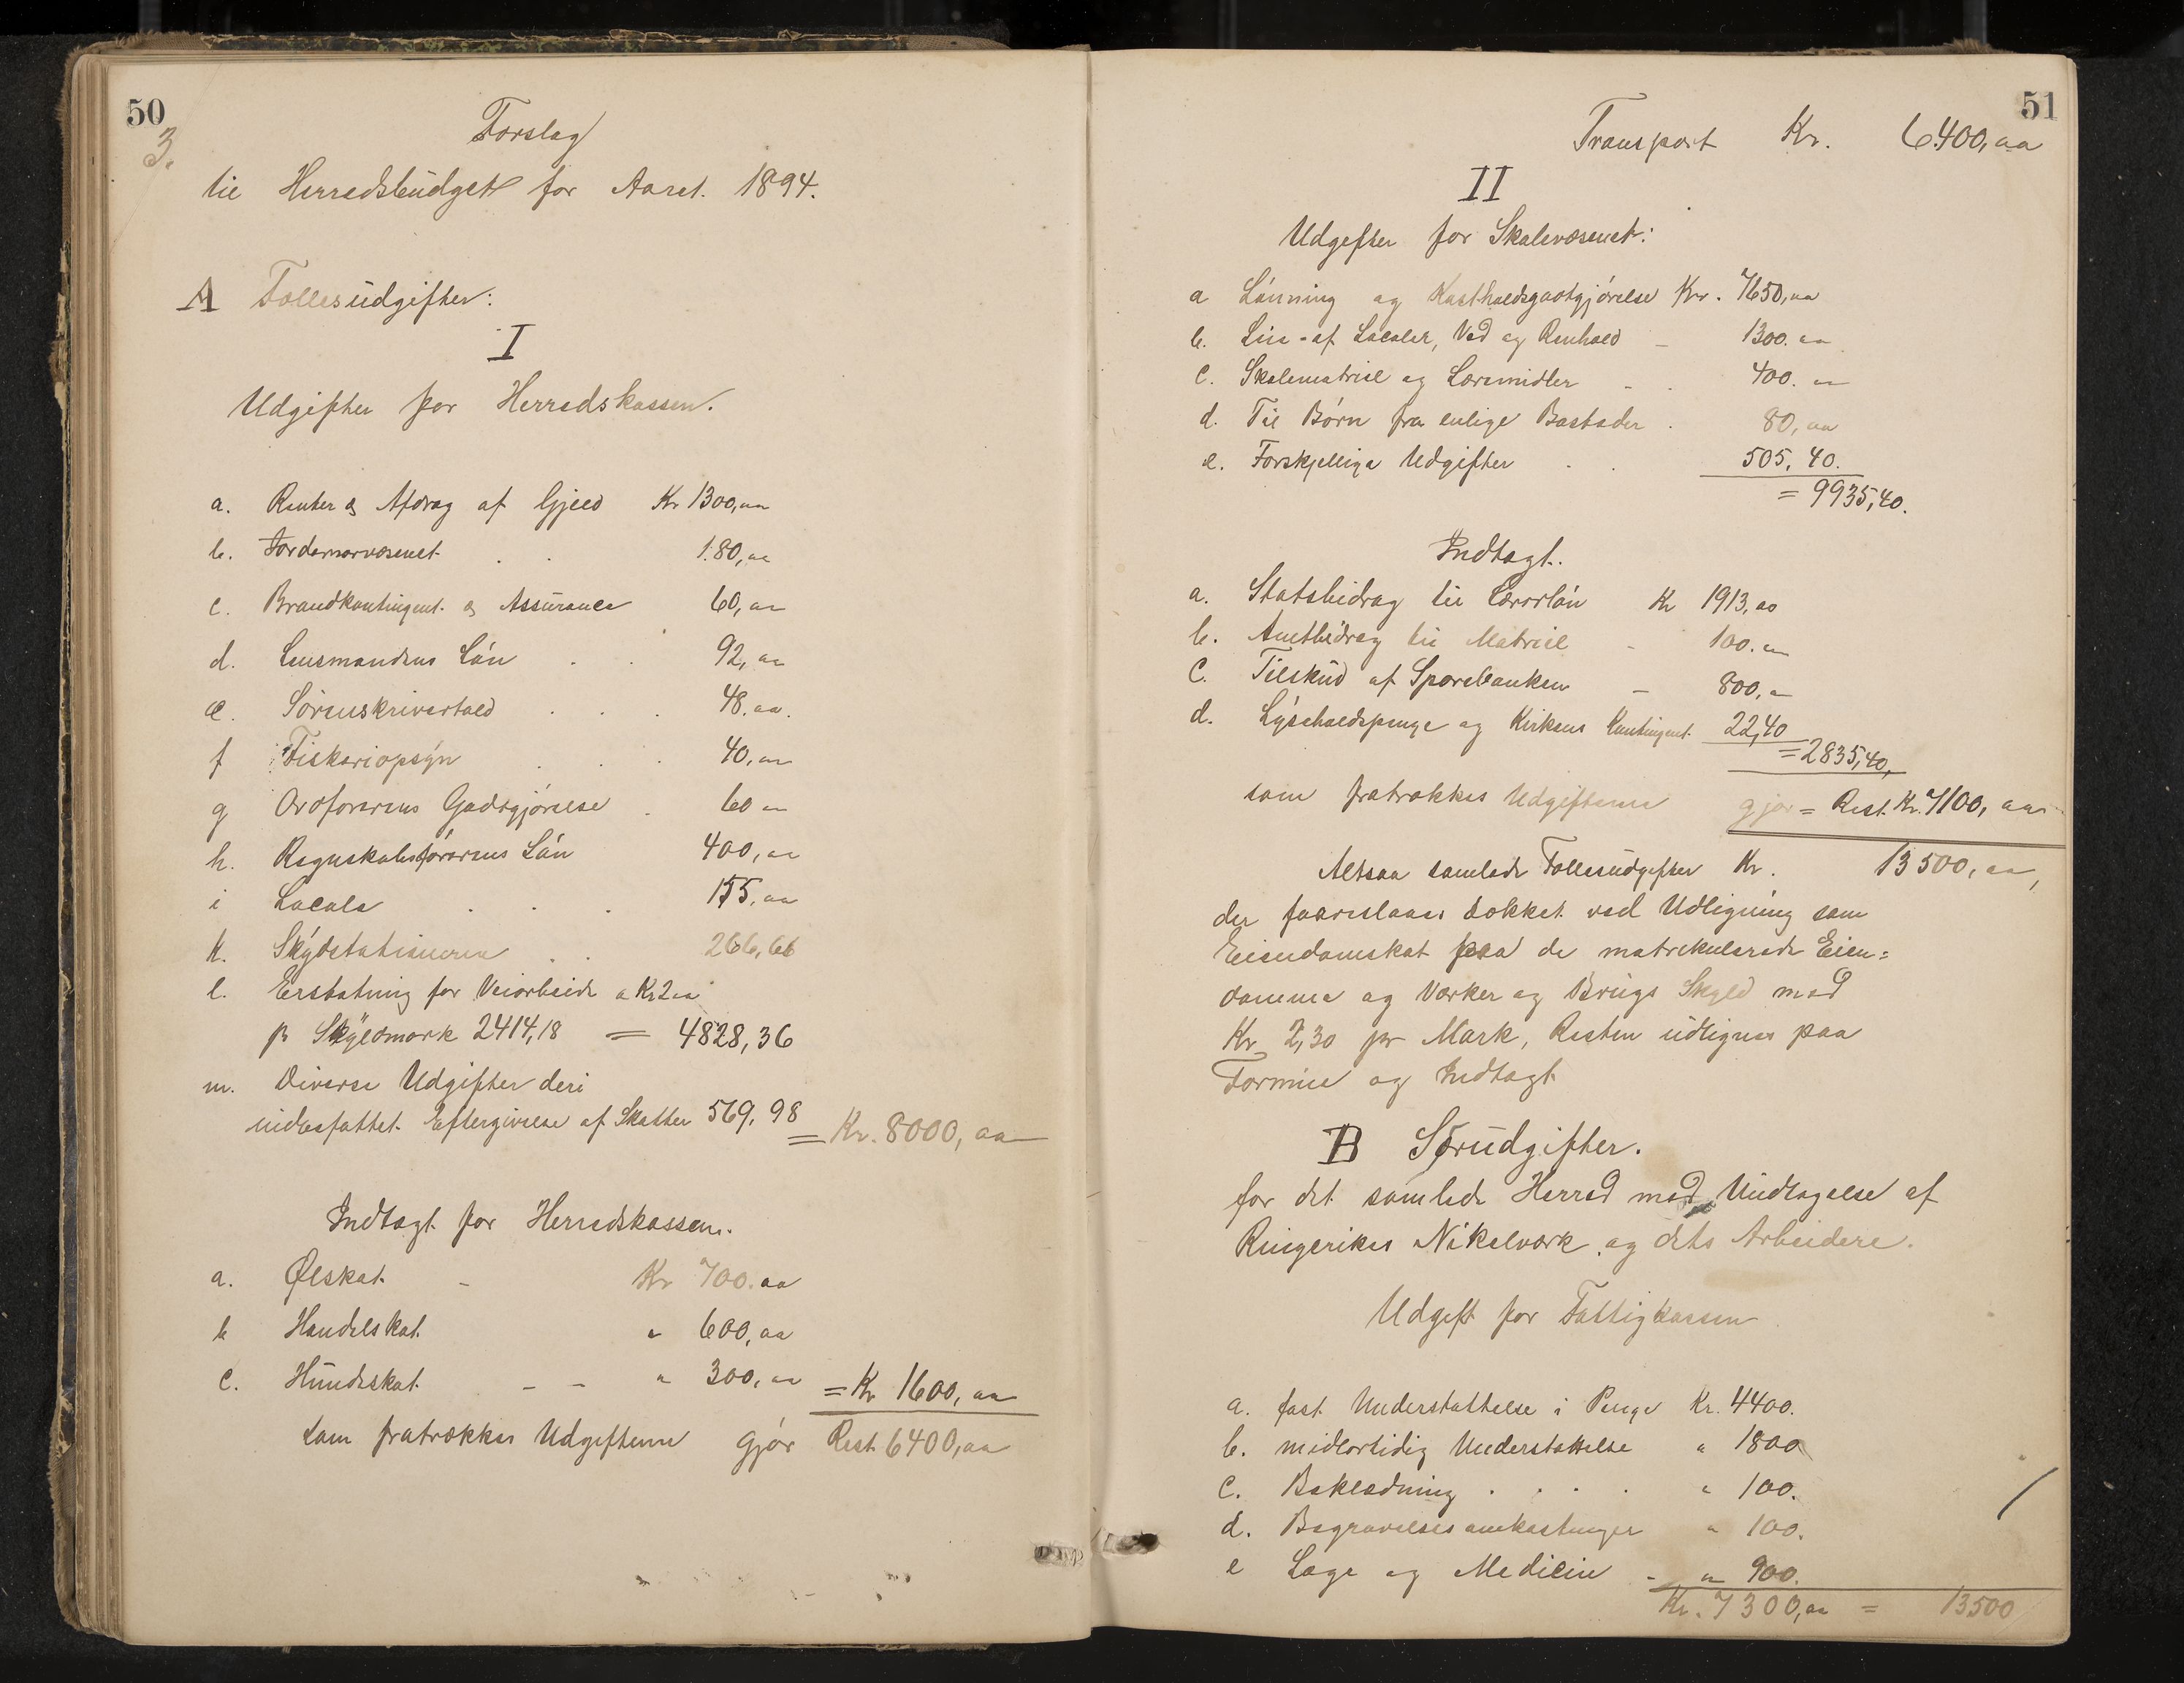 50
3.
Forslag
til Herredsbudget for Aaret 1894.
A Fællesudgifter:
I
Udgifter for Herredskassen.
a. Renter & Afdrag af Gjeld Kr 1300,00
b. Jordemorvæsenet . . 180,00
c. Brandkontingent & Assurance 60,00
d. Lensmandens Løn . . 92,00
e. Sørenskrivertold . . . 48.00.
f Fiskeriopsyn . . . 40,00
g Ordførerens Godtgjørelse . 60 00
h. Regnskabsførerens Løn 400,00
i Locale . . . 155,00
k. Skydsstationerne . . 266,66
l. Erstatning for Veiarbeide a Kr 2 00
pr Skyldmark 2414,18 = 4828,36
m. Diverse Udgifter deri
indbefattet Eftergivelse af Skatter 569,98
= Kr. 8000,00
Indtægt for Herredskassen.
a. Ølskat - Kr 700.00
b Handelskat " 600,00
c. Hundeskat - - " 300,00 = Kr 1600,00
som fratrækkes Udgifterne gjør Rest 6400,00
51
Transport Kr. 6400,00
II
Udgifter for Skolevæsenet:
a Lønning og Kostholdsgodtgjørelse Kr. 7650,00
b. Leie af Localer, Ved og Renhold - 1300.00
c. Skolematriel og Læremidler - . 400.00
d. Til Børn fra enlige Bosteder . 80,00
e. Forskjellige Udgifter . . 505,40.
= 9935,40.
Indtægt.
a. Statsbidrag til Lærerløn Kr 1913,00
b. Amtbidrag til Matriel - 100.00
c. Tilskud af Sparebanken - 800,00
d. Lyseholdspenge og Kirkens Kontingent 22,40
= 2835,40,
som fratrækkes Udgifterne gjør = Rest Kr. 7100,00
Altsaa samlede Fællesudgifter Kr. 13500,00,
der foreslaaes dækket ved Udligning som
Eiendomskat paa de matrikulerede Eien=
domme og Værker og Brugs Skyld med
Kr 2,30 pr Mark, Resten udlignes paa
Formue og Indtægt
B Særudgifter.
for det samlede Herred med Undtagelse af
Ringerikes Nikelværk og dets Arbeidere.
Udgift for Fattigkassen
a. fast Understøttelse i Penge Kr. 4400.
b. midlertidig Understøttelse " 1800
c. Beklædning . . . . " 100.
d. Begravelsesomkostninger " 100.
e Læge og Medicin - " 900.
Kr. 7300,00 = 13500